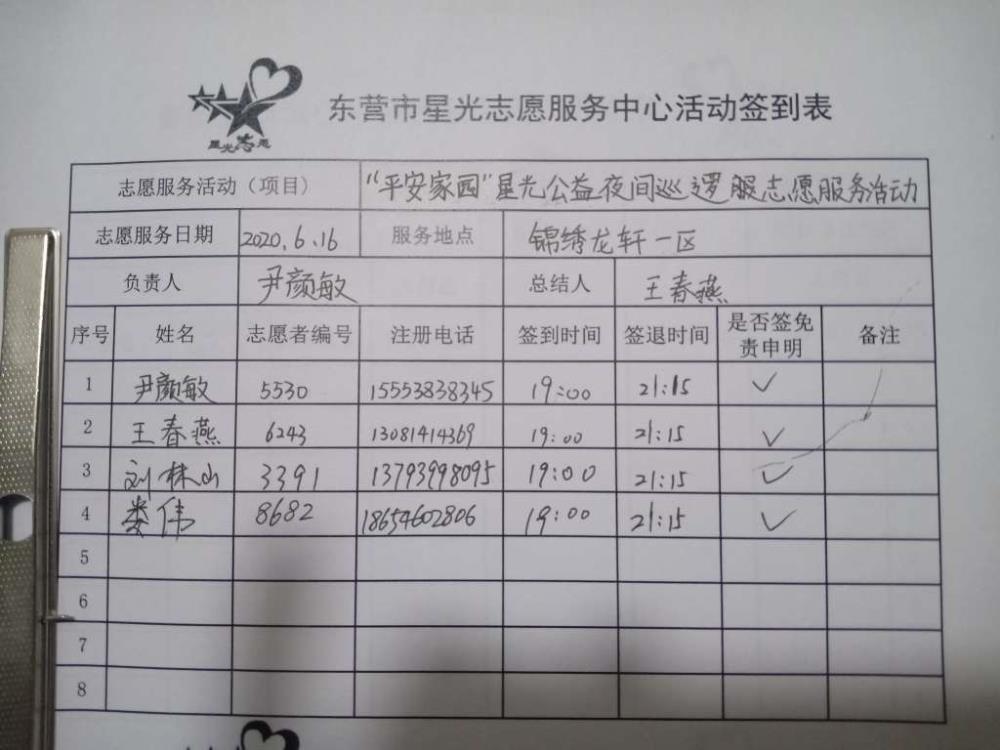 星光志愿
东营市星光志愿服务中心活动签到表
志愿服务活动（项目） “平安家园”星光公益夜间巡逻服志愿服务活动
志愿服务日期 2020.6.16 服务地点 锦绣龙轩一区
负责人 尹颜敏 总结人 王春燕
序号 姓名 志愿者编号 注册电话 签到时间 签退时间 是否签免责申明 备注
1 尹颜敏 5530 15553838345 19:00 21:15 ✓
2 王春燕 6243 13081414369 19:00 21:15 ✓
3 刘林山 3391 13793998095 19:00 21:15 ✓
4 娄伟 8682 18654602806 19:00 21:15 ✓
5
6
7
8